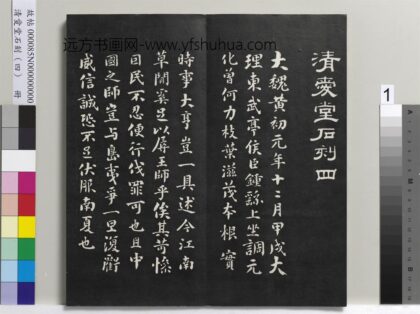 清愛堂石刻四
大魏黃初元年十二月甲戌大
理東武亭侯臣鍾繇上坐調元
化曾何力枝葉滋茂本根實
時事大亨豈一具述今江南
卑闇奚足以屏王師乎俟其苛慘
民不忍便行伐罪可也且中
國之師豈与島夷爭一旦復釁
威信誠恐不足伏服南夏也
遠方书画网-www.yfshuhua.com
故帖 000085N000000000
清愛堂石刻（四） 冊
1